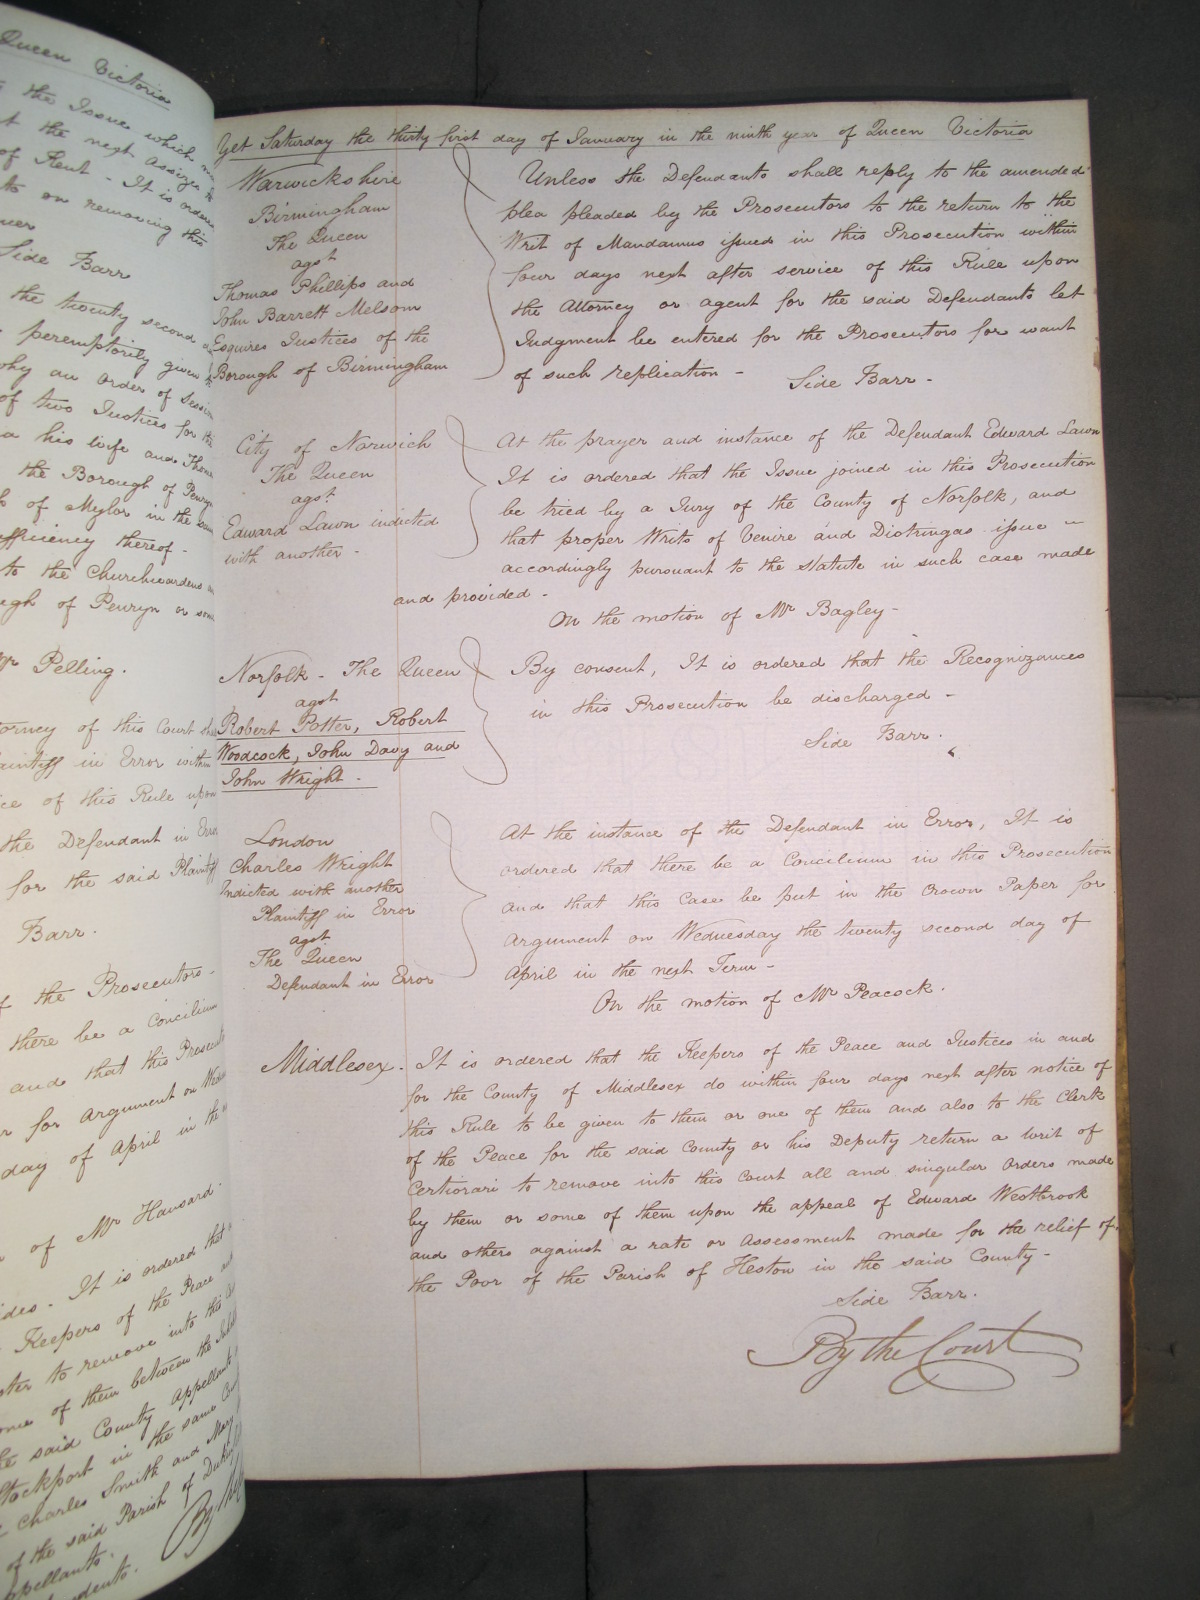 Queen Victoria
the Issue which
the next Assizes
of Kent - It is
to on removing this
Side Barr
the twenty second
peremptorily given
why an order of Session
of two Justices for the
his wife and
the Borough of Penryn
of Mylor in the
thereof -
to the Churchwardens
of Penryn or some
Mr Pelling.
of this Court
in Error within
of this Rule upon
the Defendant in Error
for the said Plaintiff
Barr.
the Prosecutors -
there be a Concilium
and that this
for Argument on
day of April in the
of Mr Hansard -
It is ordered that
Keepers of the Peace and
to remove into this
of them between the
said County Appellants
Stockport in the same
Charles Smith and Mary
of the said Parish of
By the
Yet Saturday the thirty first day of January in the ninth year of Queen Victoria
Warwickshire
Birmingham
The Queen
agst
Thomas Phillips and
John Barrett Melsom
Esquires Justices of the
Borough of Birmingham
Unless the Defendants shall reply to the amended
plea pleaded by the Prosecutors to the return to the
Writ of Mandamus issued in this Prosecution within
four days next after service of this Rule upon
the Attorney or agent for the said Defendants let
Judgment be entered for the Prosecutors for want
of such replication -
Side Barr -
City of Norwich
The Queen
agst
Edward Lawn indicted
with another -
At the prayer and instance of the Defendant Edward Lawn
It is ordered that the Issue joined in this Prosecution
be tried by a Jury of the County of Norfolk, and
that proper Writs of Venire and Distringas issue -
accordingly pursuant to the Statute in such case made
and provided -
On the motion of Mr Bagley -
Norfolk - The Queen
agst
Robert Potter, Robert
Woodcock, John Davy and
John Wright -
By consent, It is ordered that the Recognizances
in this Prosecution be discharged -
Side Barr.
London
Charles Wright
Indicted with another
Plaintiff in Error
agst
The Queen
Defendant in Error
At the instance of the Defendant in Error, It is
ordered that there be a Concilium in this Prosecution
and that this Case be put in the Crown Paper for
Argument on Wednesday the twenty second day of
April in the next Term -
On the motion of Mr Peacock.
Middlesex. It is ordered that the Keepers of the Peace and Justices in and
for the County of Middlesex do within four days next after notice of
this Rule to be given to them or one of them and also to the Clerk
of the Peace for the said County or his Deputy return a Writ of
Certiorari to remove into this Court all and singular Orders made
by them or some of them upon the appeal of Edward Westbrook
and others against a rate or Assessment made for the relief of
the Poor of the Parish of Heston in the said County -
Side Barr.
By the Court